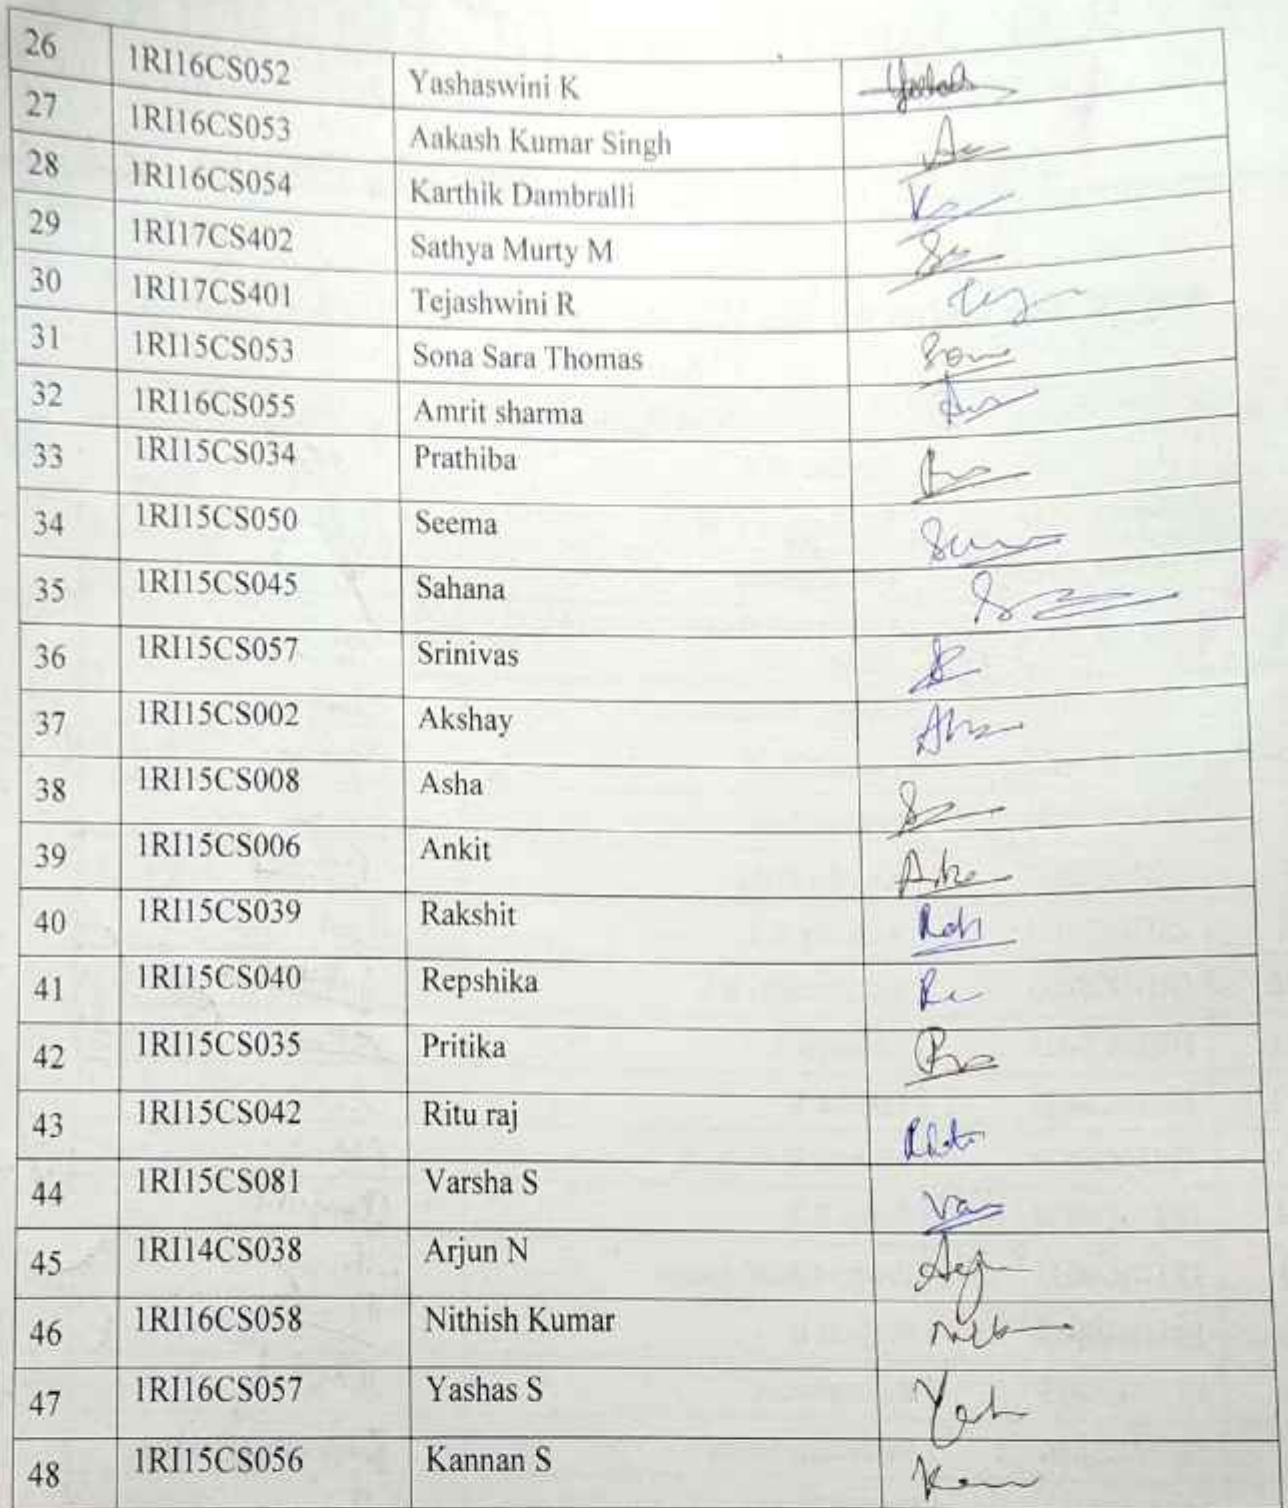 26 1RI16CS052 Yashaswini K
27 1RI16CS053 Aakash Kumar Singh
28 1RI16CS054 Karthik Dambralli
29 1RI17CS402 Sathya Murty M
30 1RI17CS401 Tejashwini R
31 1RI15CS053 Sona Sara Thomas
32 1RI16CS055 Amrit sharma
33 1RI15CS034 Prathiba
34 1RI15CS050 Seema
35 1RI15CS045 Sahana
36 1RI15CS057 Srinivas
37 1RI15CS002 Akshay
38 1RI15CS008 Asha
39 1RI15CS006 Ankit
40 1RI15CS039 Rakshit
41 1RI15CS040 Repshika
42 1RI15CS035 Pritika
43 1RI15CS042 Ritu raj
44 1RI15CS081 Varsha S
45 1RI14CS038 Arjun N
46 1RI16CS058 Nithish Kumar
47 1RI16CS057 Yashas S
48 1RI15CS056 Kannan S